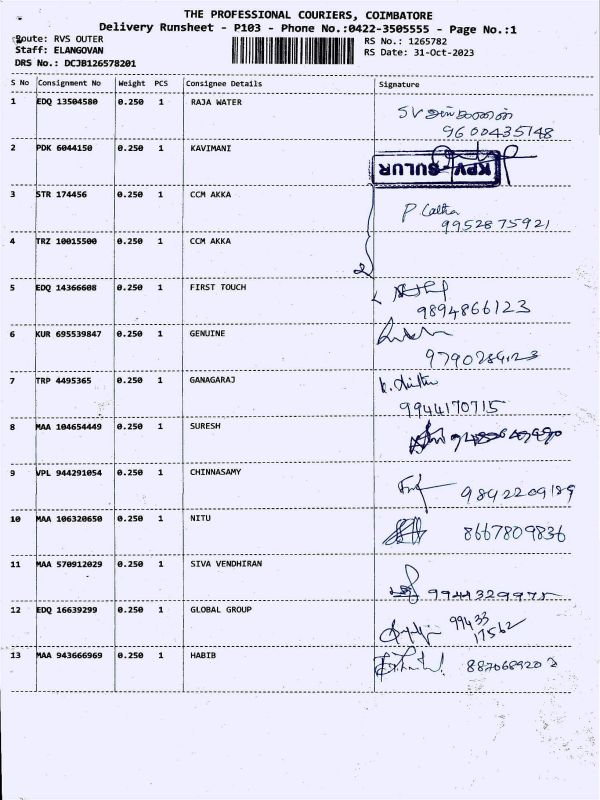 THE PROFESSIONAL COURIERS, COIMBATORE
Delivery Runsheet - P103 - Phone No.:0422-3505555 - Page No.:1
Route: RVS OUTER
RS No.: 1265782
Staff: ELANGOVAN
RS Date: 31-Oct-2023
DRS No.: DCJB126578201
S No Consignment No Weight PCS Consignee Details Signature
1 EDQ 13504580 0.250 1 RAJA WATER
SV
9600435148
2 PDK 6044150 0.250 1 KAVIMANI
KPV-SULUR
3 STR 174456 0.250 1 CCM AKKA
9952875921
4 TRZ 10015500 0.250 1 CCM AKKA
5 EDQ 14366608 0.250 1 FIRST TOUCH
9894866123
6 KUR 695539847 0.250 1 GENUINE
7 TRP 4495365 0.250 1 GANAGARAJ
9944170715
8 MAA 104654449 0.250 1 SURESH
9 VPL 944291054 0.250 1 CHINNASAMY
9842209189
10 MAA 106320650 0.250 1 NITU
8667809836
11 MAA 570912029 0.250 1 SIVA VENDHIRAN
9944329975
12 EDQ 16639299 0.250 1 GLOBAL GROUP
99433
17562
13 MAA 943666969 0.250 1 HABIB
8870689202